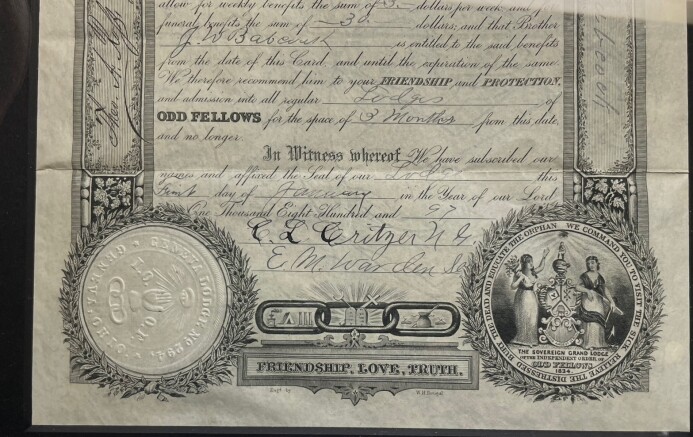 allow for weekly benefits the sum of 3. dollars per week and
funeral benefits the sum of 30. dollars; and that Brother
J. W. Babcock is entitled to the said benefits
from the date of this Card, and until the expiration of the same
We therefore recommend him to your FRIENDSHIP and PROTECTION,
and admission into all regular Lodges of
ODD FELLOWS for the space of 3 Months from this date,
and no longer.
In Witness whereof We have subscribed our
names and affixed the Seal of our Lodge this
First day of January in the Year of our Lord
One Thousand Eight Hundred and 97
C. L. Critzer N. G.
E. M. Warden
FRIENDSHIP, LOVE, TRUTH.
WE COMMAND YOU TO VISIT THE SICK RELIEVE THE DISTRESSED BURY THE DEAD AND EDUCATE THE ORPHAN
THE SOVEREIGN GRAND LODGE
OF THE INDEPENDENT ORDER OF
ODD FELLOWS
1834.
GENEVA LODGE, NO 224,
GENEVA, OHIO